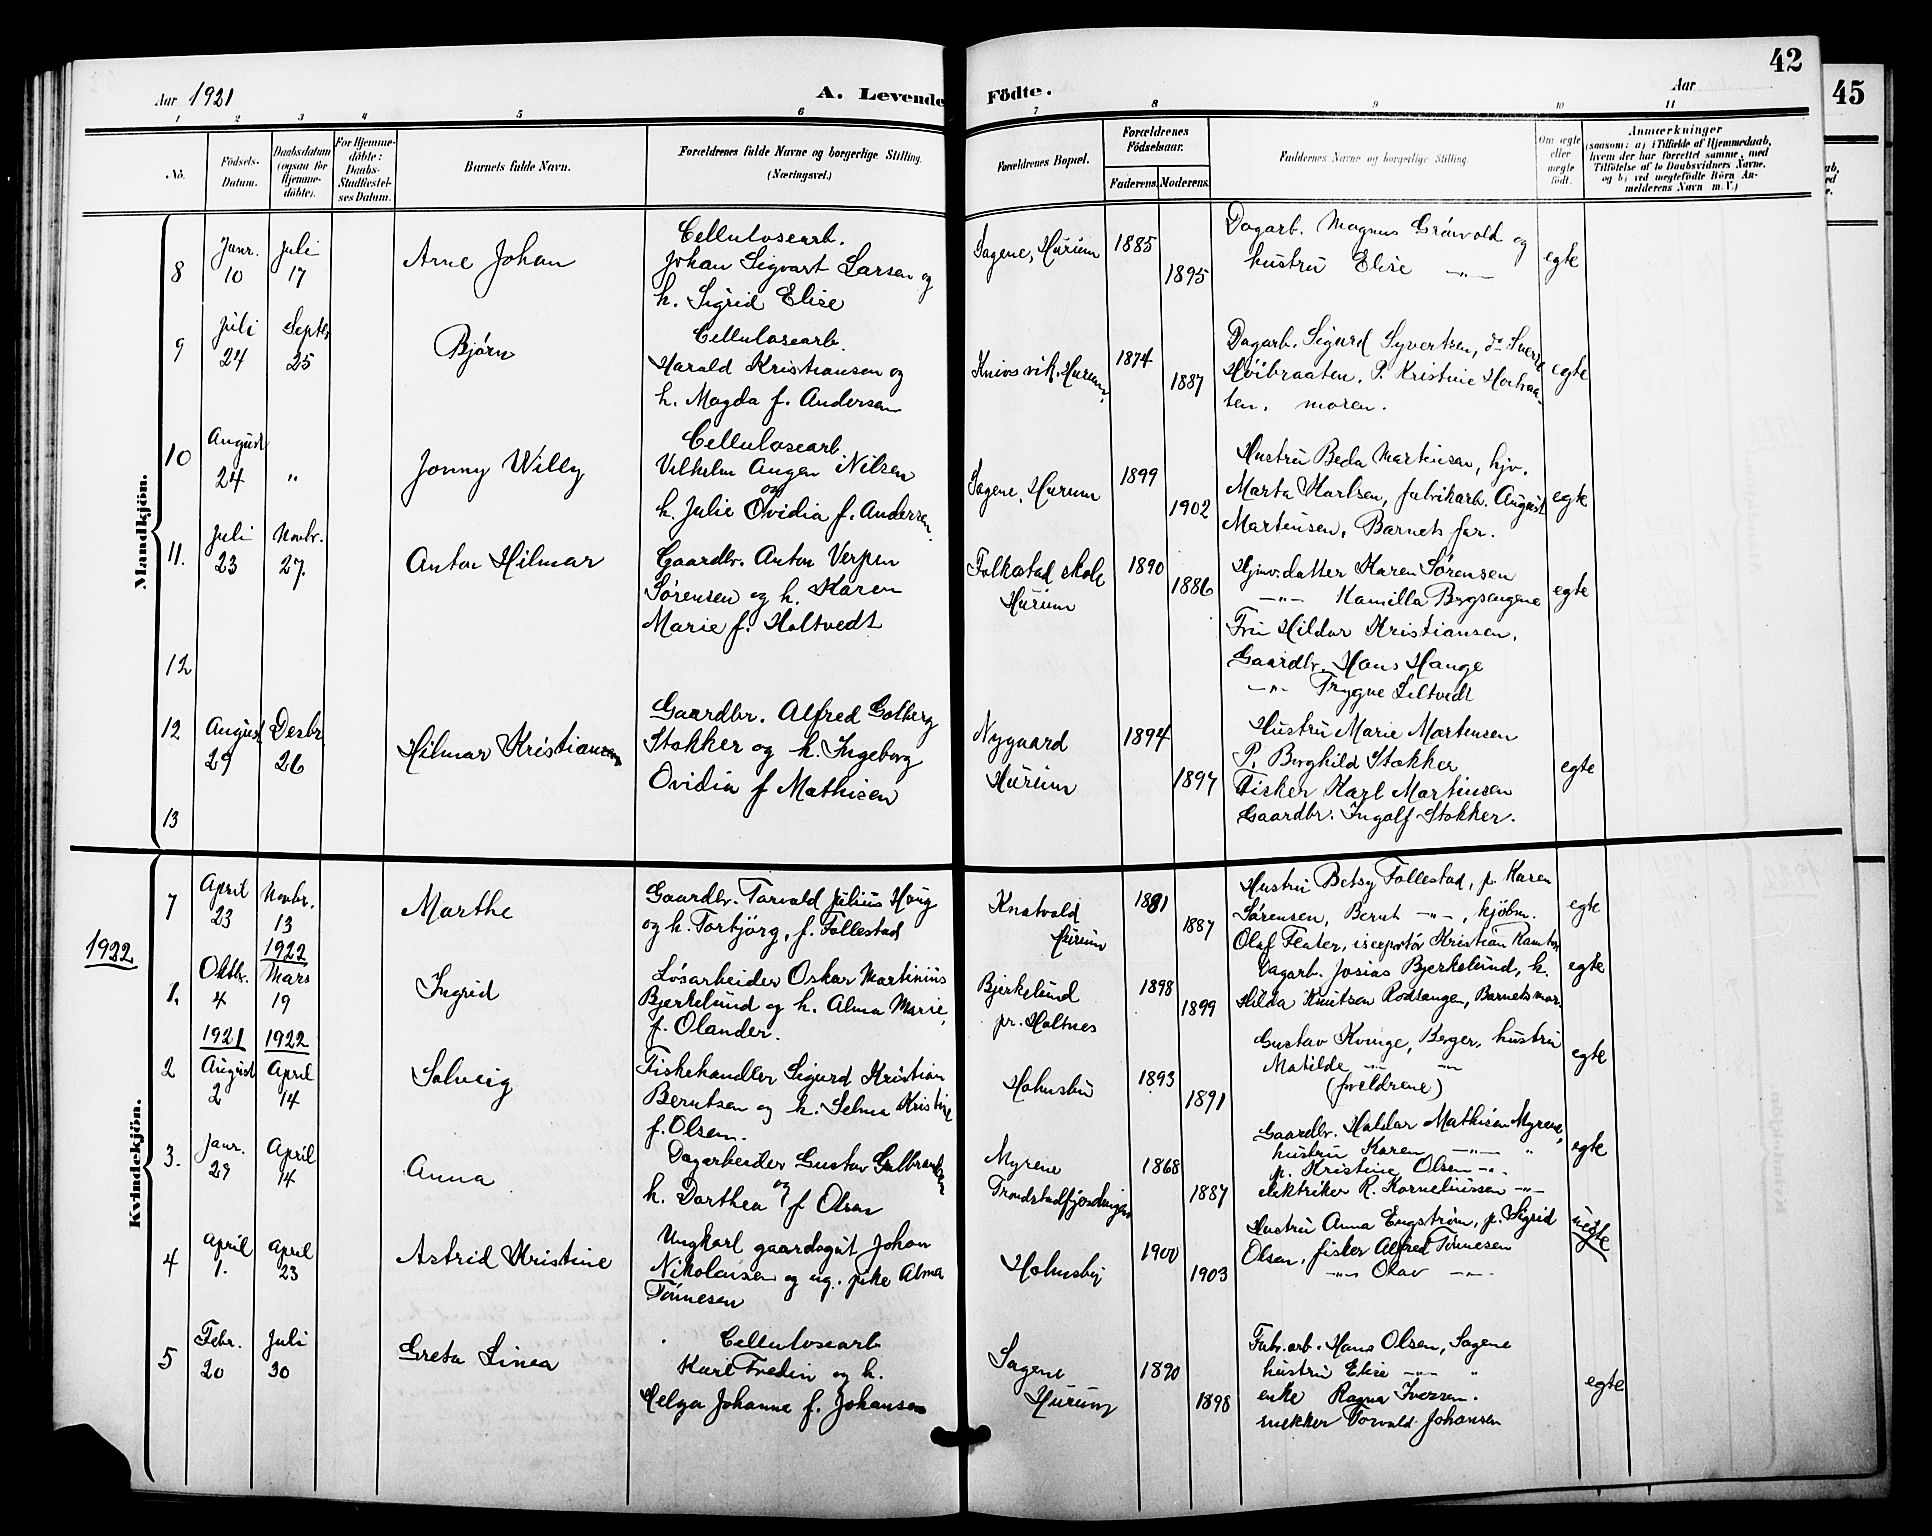 42
45
Aar 1921
A. Levende Födte.
Aar
1 2 3 4 5 6 7 8 9 10 11
No.
Födsels-
Datum.
Daabsdatum
(ogsaa for
Hjemme-
döbte).
For Hjemme-
döbte:
Daabs-
Stadfæstel-
ses Datum.
Barnets fulde Navn.
Forældrenes fulde Navne og borgerlige Stilling.
(Næringsvei.)
Forældrenes Bopæl.
Forældrenes
Födselsaar.
Faderens.
Moderens.
Faddernes Navne og borgerlige Stilling.
Om ægte
eller
uægte
födt.
Anmærkninger
(saasom: a) i Tilfælde af Hjemmedaab,
hvem der har forrettet samme, med
Tilföielse af to Daabsvidners Navne,
og b) ved uægtefödte Börn An-
melderens Navn m. V.)
Mandkjön.
8
Janr.
10
Juli
17
Arne Johan
Cellulosearb.
Johan Sigvart Larsen og
h. Sigrid Elise
Sagene, Hurum
1885
1895
Dagarb. Magnus Grönvold og
hustru Elise —"—
egte
9
Juli
24
Septr
25
Bjørn
Cellulosearb.
Harald Kristiansen og
h. Magda f. Andersen
Knivsvik, Hurum
1874
1887
Dagarb. Sigurd Syvertsen, do Sverre
Höibraaten, P. Kristine Hortvaa-
ten, moren.
egte
10
August
24
"
Jonny Willy
Cellulosearb
Vilhelm Angar Nilsen
og
h. Julie Ovidia f. Andersen
Sagene, Hurum
1899
1902
Hustru Beda Martinsen, hjv.
Marta Karlsen, fabrikarb. August
Martinsen, Barnets far.
egte
11.
Juli
23
Novbr.
27.
Anton Hilmar
Gaardbr. Anton Verpen
Sørensen og h. Karen
Marie f. Holtvedt
Folkestad skole
Hurum
1890
1886
Hjmv. datter Karen Sørensen
—"— Kamilla Bygsengene
Fru Hildur Kristiansen,
Gaardbr. Hans Hauge
—"— Trygve Liltvedt
egte
12
12
August
29
Desbr
26
Hilmar Kristiansen
Gaardbr. Alfred Solberg
Stokker og h. Ingeborg
Ovidia f Mathisen
Nygaard
Hurum
1894
1897
Hustru Marie Martinsen
P. Borghild Stokker
Fisker Karl Martinsen
Gaardbr. Ingolf Stokker.
egte
13
Kvindekjön.
7
April
23
Novbr.
13
Marthe
Gaardbr. Torvald Julius Haug
og h. Torbjörg, f. Follestad
Knatvold
Hurum
1881
1887
Hustru Betsy Follestad, p. Karen
Sørensen, Bernt —"—, kjöbm.
Olaf Flater, Kristian
egte
1922
1922
1.
Oktbr.
4
Mars
19
Ingrid
Lösarbeider Oskar Martinius
Bjerkelund og h. Alma Marie,
f. Olander.
Bjerkelund
pr. Holtnes
1898
1899
Dagarb. Josias Bjerkelund, h.
Hilda Knutsen Rodtangen, Barnets mor.
egte
1921
1922
2
August
2
April
14
Solveig
Fiskehandler Sigurd Kristian
Berntsen og h. Selma Kristine
f. Olsen.
Holmsbu
1893
1891
Gustav Kvinge, Berger, hustru
Matilde —"— —"—
(foreldrene)
egte
3.
Janr.
29
April
14
Anna
Dagarbeider Gustav Gulbrandsen
og
h. Dorthea f Olsen
Myrene
1868
1887
Gaardbr. Haldor Mathisen Myrene,
hustru Karen —"— "
p. Kristine Olsen —"—
elektriker R. Korneliussen —"—
egte
4
April
1.
April
23
Astrid Kristine
Ungkarl gaardsgut Johan
Nikolaisen og ug. pike Alma
Tønnesen
Holmsby
1900
1903
Hustru Anna Engstrøm, p. Sigrid
Olsen, fisker Alfred Tønnesen
—"— Olav —"—
uegte
5
Febr.
20
Juli
30
Greta Linea
Cellulosearb
Karl Fredin og h.
Helga Johanne f. Johansen
Sagene
Hurum
1890
1898
Fabr.arb. Hans Olsen, Sagene
hustru Elise —"— "
enke Ragna Iversen.
snekker Torvald Johansen
egte